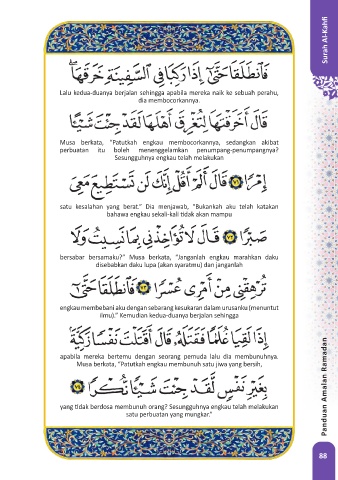 Surah Al-Kahfi
فَٱنطَلَقَا حَتَّىٰٓ إِذَا رَكِبَا فِي ٱلسَّفِينَةِ خَرَقَهَاۖ
Lalu kedua-duanya berjalan sehingga apabila mereka naik ke sebuah perahu,
dia membocorkannya.
قَالَ أَخَرَقْتَهَا لِتُغْرِقَ أَهْلَهَا لَقَدْ جِئْتَ شَيْـًٔا
Musa berkata, "Patutkah engkau membocorkannya, sedangkan akibat
perbuatan itu boleh menenggelamkan penumpang-penumpangnya?
Sesungguhnya engkau telah melakukan
إِمْرًا ٧١ قَالَ أَلَمْ أَقُلْ إِنَّكَ لَن تَسْتَطِيعَ مَعِيَ
satu kesalahan yang berat." Dia menjawab, "Bukankah aku telah katakan
bahawa engkau sekali-kali tidak akan mampu
صَبْرًا ٧٢ قَالَ لَا تُؤَاخِذْنِي بِمَا نَسِيتُ وَلَا
bersabar bersamaku?" Musa berkata, "Janganlah engkau marahkan daku
disebabkan daku lupa (akan syaratmu) dan janganlah
تُرْهِقْنِي مِنْ أَمْرِي عُسْرًا ٧٣ فَٱنطَلَقَا حَتَّىٰٓ
engkau membebani aku dengan sebarang kesukaran dalam urusanku (menuntut
ilmu)." Kemudian kedua-duanya berjalan sehingga
إِذَا لَقِيَا غُلَٰمًا فَقَتَلَهُۥ قَالَ أَقَتَلْتَ نَفْسًا زَكِيَّةًۢ
apabila mereka bertemu dengan seorang pemuda lalu dia membunuhnya.
Musa berkata, "Patutkah engkau membunuh satu jiwa yang bersih,
بِغَيْرِ نَفْسٍ لَّقَدْ جِئْتَ شَيْـًٔا نُّكْرًا ٧٤
yang tidak berdosa membunuh orang? Sesungguhnya engkau telah melakukan
satu perbuatan yang mungkar."
Panduan Amalan Ramadan
88